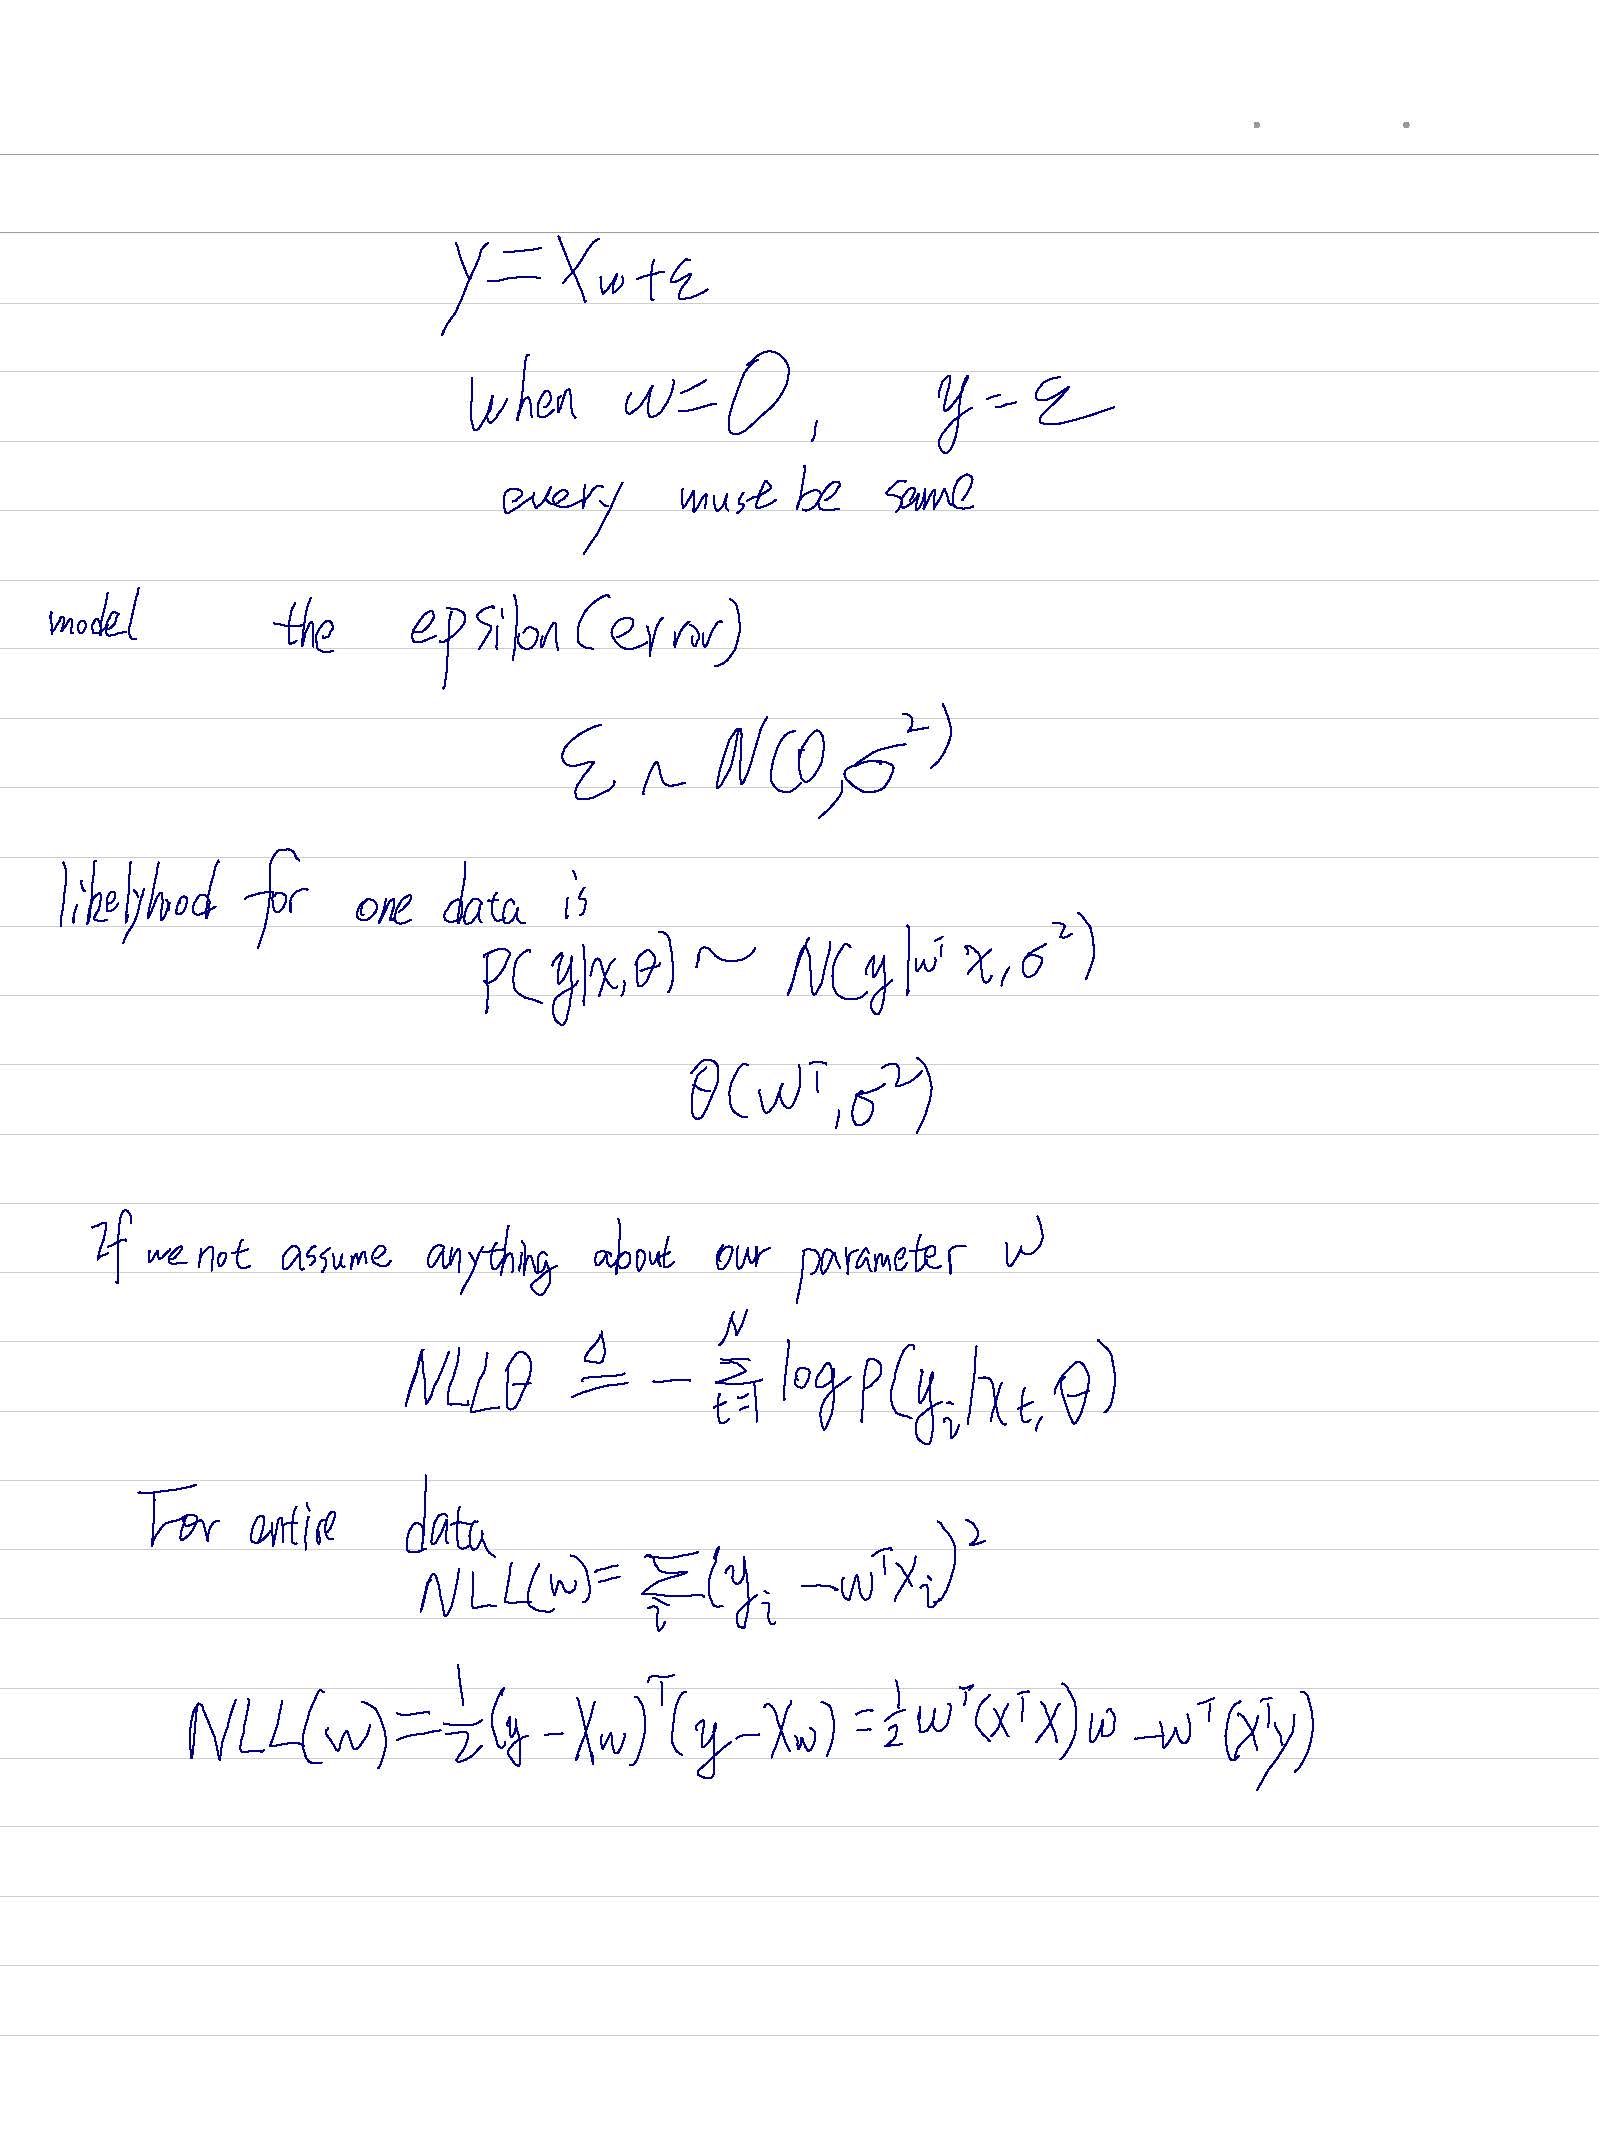 y = Xw + ε
when w = 0, y = ε
every must be same
model the epsilon (error)
ε ~ N(0, σ²)
likelyhood for one data is
P(y|x, θ) ~ N(y|wᵀx, σ²)
θ(wᵀ, σ²)
If we not assume anything about our parameter w
NLLθ ≜ - Σ_{t=1}^{N} log p(y_i|x_t, θ)
For entire data
NLL(w) = Σ_i (y_i - wᵀx_i)²
NLL(w) = ½(y - Xw)ᵀ(y - Xw) = ½wᵀ(XᵀX)w - wᵀ(Xᵀy)